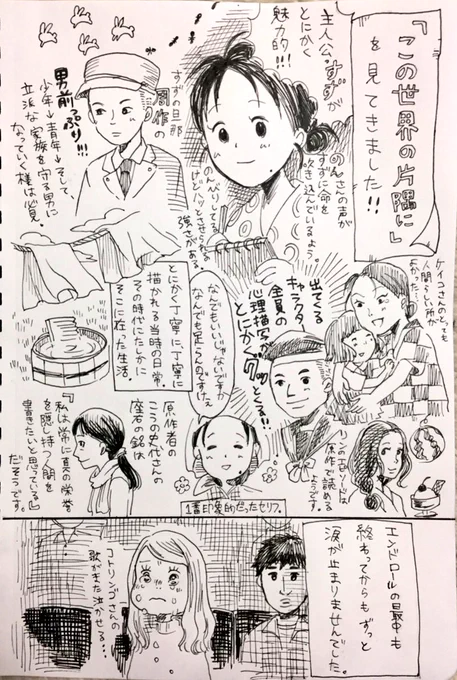 『この世界の片隅に』
を見てきました!!
主人公、すずが
とにかく
魅力的!!!
のんさんの声が
すずに命を
吹き込んでいるよう。
のんびりしてる
けどハッとさせられる
強さがある。
すずの旦那
周作の
男前っぷり!!!
少年→青年→そして、
立派な家族を守る男に
なっていく様は必見。
ケイコさんのとっても
人間らしい所が
よかった…
出てくる
キャラクター
全員の
心理描写が
とにかくグッとくる!!
なんでもいいじゃないですか
なんでも足らんのですけぇ
1番印象的だったセリフ。
とにかく丁寧に、丁寧に
描かれる当時の日常。
その時代にたしかに
そこに在った生活。
リンのエピソードは
原作で読める
ようです。
原作者の
こうの史代さんの
座右の銘は
『私は常に真の栄誉
を隠し持つ人間を
書きたいと思っている』
だそうです。
エンドロールの最中も
終わってからもずっと
涙が止まりませんでした。
コトリンゴさんの
歌がまた泣かせる…